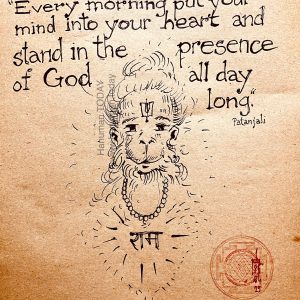 "Every morning put your
mind into your heart and
stand in the presence
of God all day
long."
Patanjali
Hanuman TODAY
राम